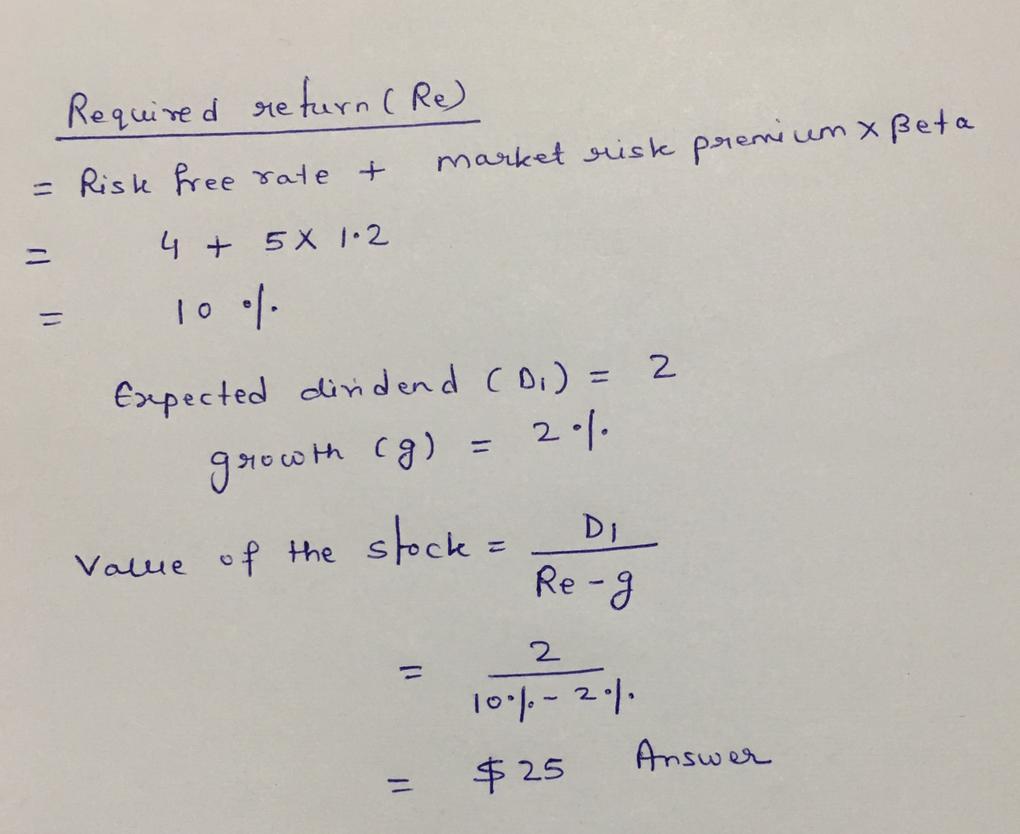 Required return (Re)
= Risk free rate + market risk premium x Beta
= 4 + 5 X 1.2
= 10 %
Expected dividend (D1) = 2
growth (g) = 2 %
Value of the stock = D1 / Re - g
= 2 / 10% - 2%
= $ 25 Answer